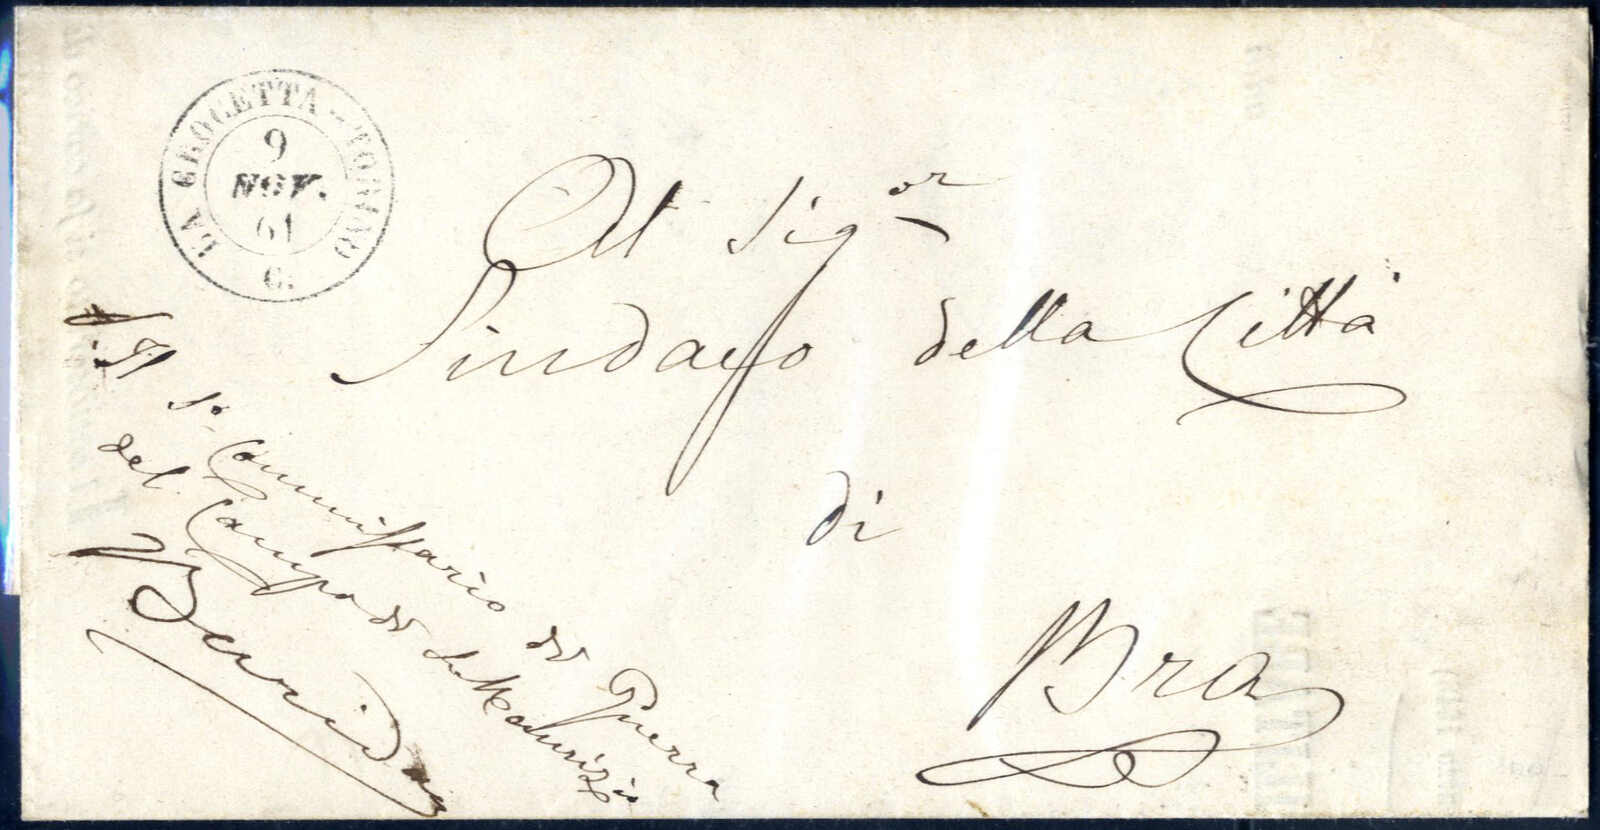 LA CROCETTA - TORINO
9
NOV.
61
C.
Al Sig.or
Sindaco della Città
di
Bra
Il So. Commissario di Guerra
del Campo di S. Maurizio